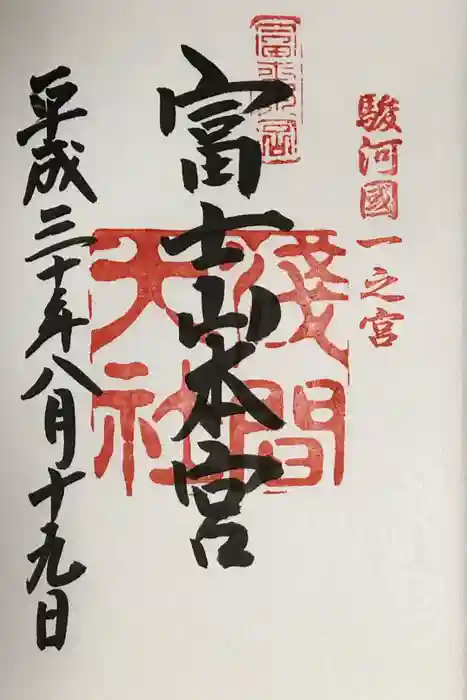 駿河國一之宮
富士山本宮
淺間大社
平成三十年八月十九日